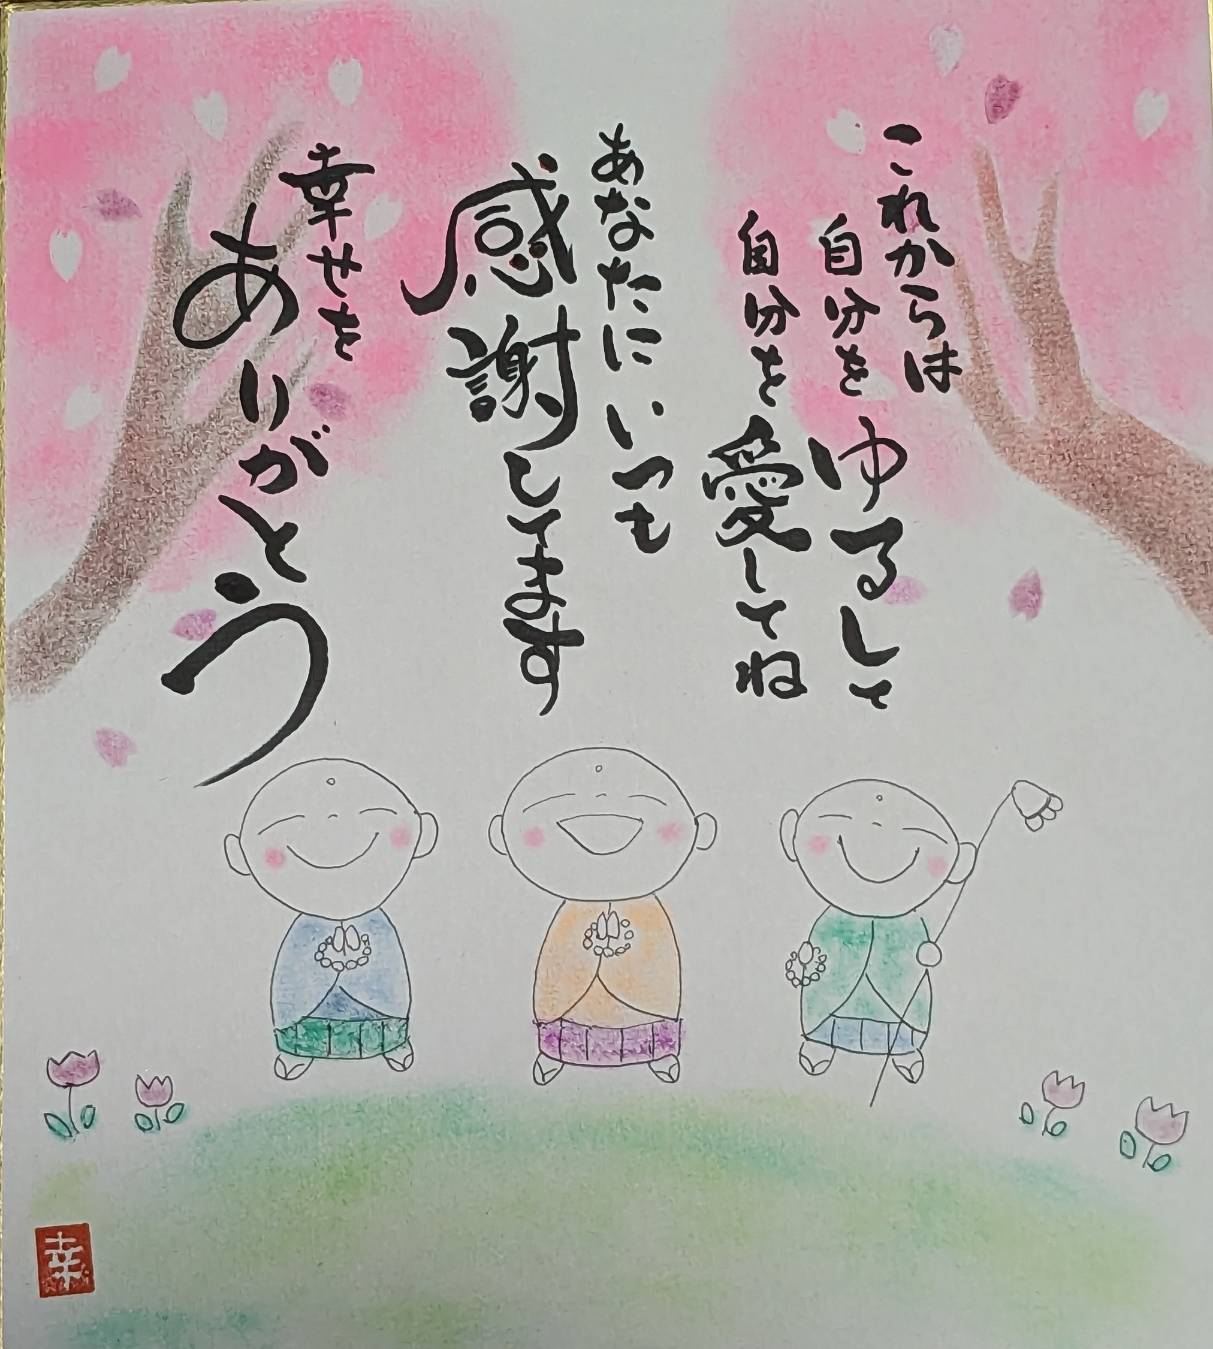 これからは
自分をゆるして
自分を愛してね
あなたにいつも
感謝してます
幸せを
ありがとう
幸